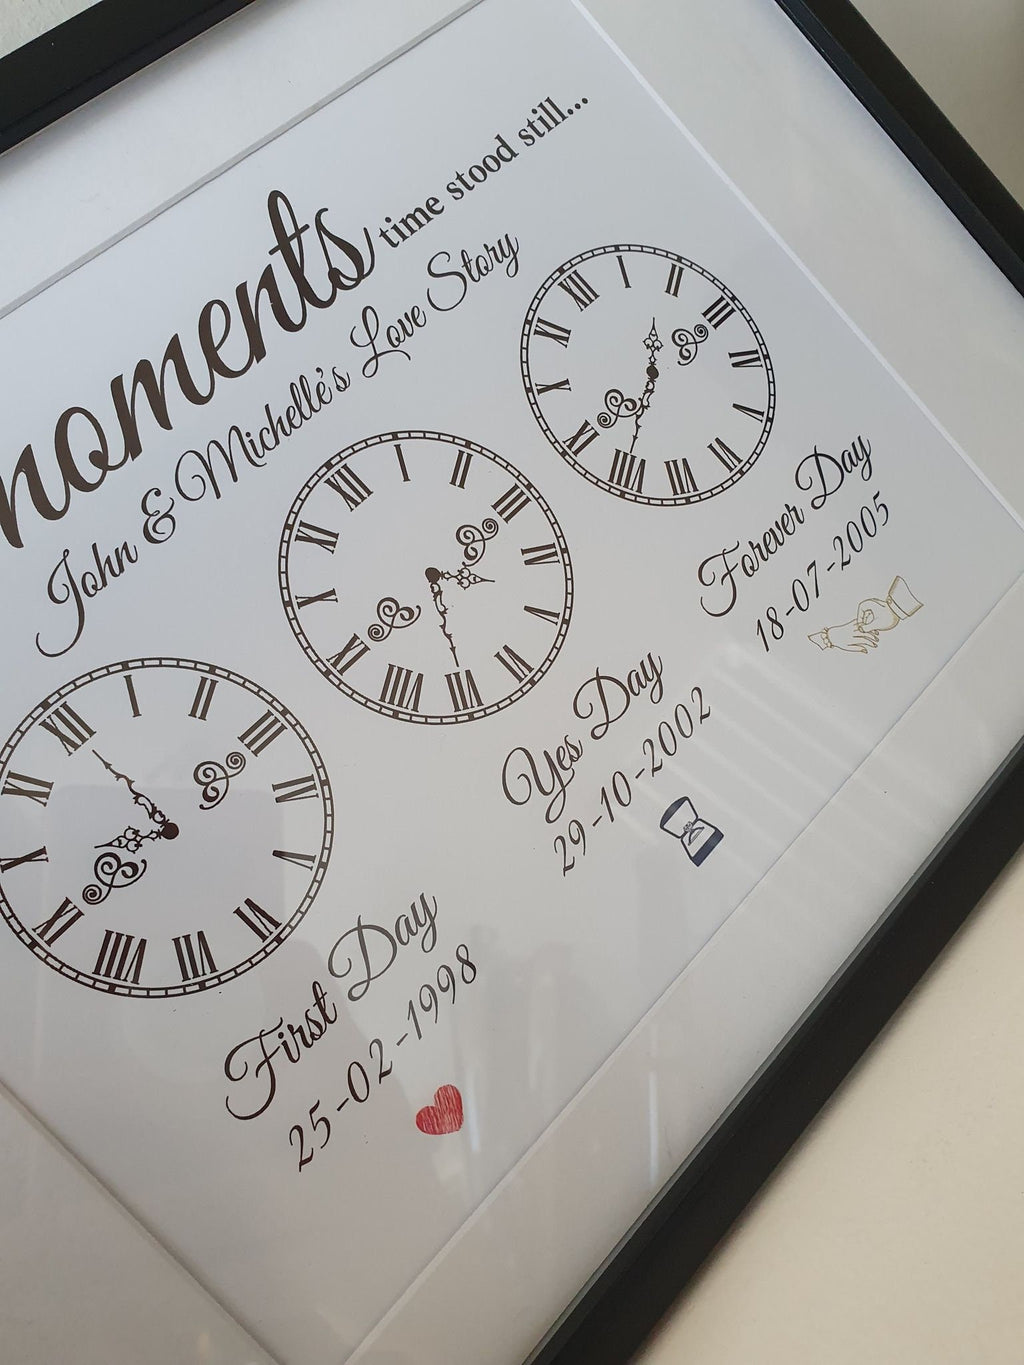 moments time stood still...
John & Michelle's Love Story
XII I II III IV V VI VII VIII IX X XI
First Day
25-02-1998
XII I II III IV V VI VII VIII IX X XI
Yes Day
29-10-2002
XII I II III IV V VI VII VIII IX X XI
Forever Day
18-07-2005